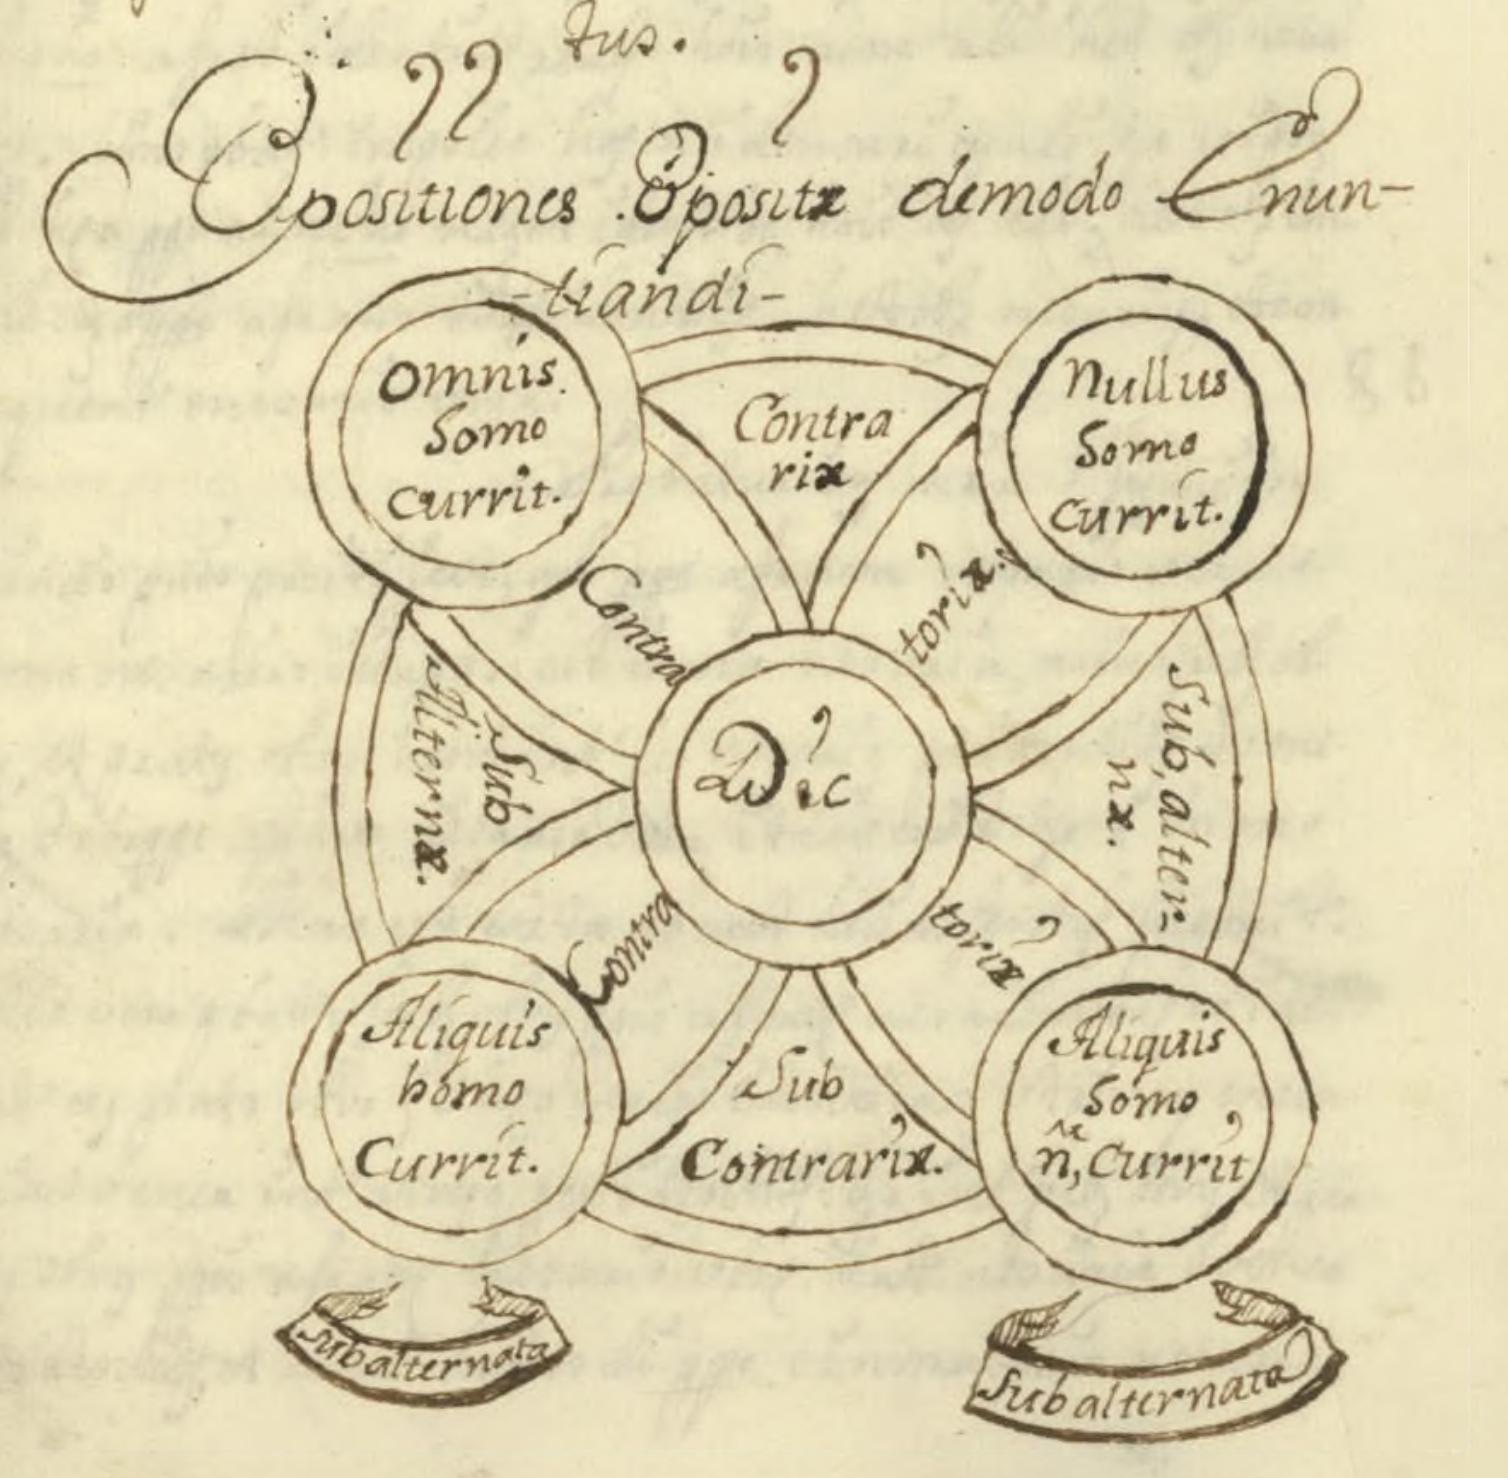 tus.
Opositiones Opositæ demodo Enun-
-tiandi-
Omnis.
homo
currit.
Contra
riæ
Nullus
homo
currit.
Contra
toriæ.
Sub
Alternæ.
Dic
Sub,alter-
næ.
Contra
toriæ
Aliquis
homo
Currit.
Sub
Contrariæ.
Aliquis
homo
ñ, Currit
Subalternata
Subalternata